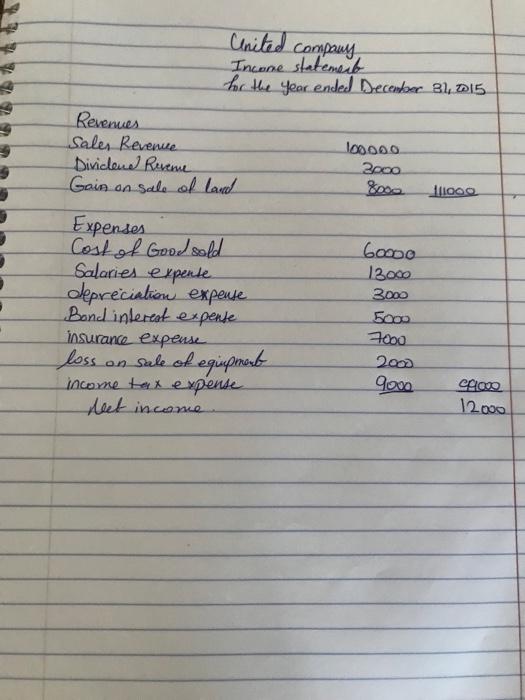 United company
Income statement
for the year ended December 31, 2015
Revenues
Sales Revenue 100000
Dividend Revenue 3000
Gain on sale of land 8000 111000
Expenses
Cost of Good sold 60000
Salaries expense 13000
depreciation expense 3000
Bond interest expense 5000
insurance expense 7000
loss on sale of equipment 2000
income tax expense 9000 99000
Net income. 12000